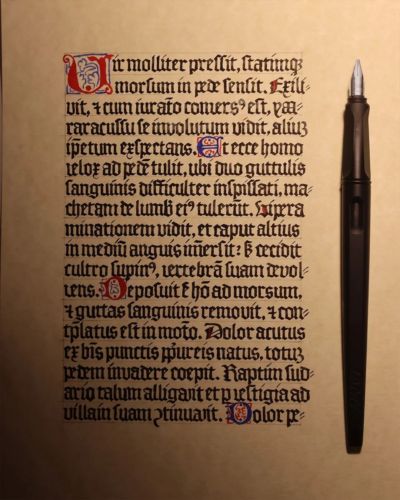 Vir molliter pressit, statimq;
morsum in pede sensit. Exili-
vit, ⁊ cum iurato comersꝰ est, yaa-
raracussu se involutum vidit, aliuʒ
ip̄etum exspectans. Et ecce homo
velox ad pedē tulit, ubi duo guttulis
sanguinis difficulter inspissati, ma-
chetam de lumb̄ eiꝰ tulerūt. Vipera
minationem vidit, et caput altius
in mediū anguis im̄ersit: cecidit
cultro supinꝰ, vertebrā suam devol-
vens. Deposuit hō ad morsum,
⁊ guttas sanguinis removit, ⁊ con-
tp̄latus est in mōto. Dolor acutus
ex bīs punctis pp̄ureis natus, totuʒ
pedem invadere coepit. Raptim sud-
ario talum alligavit et ꝑ vestigia ad
villam suam ꝯtinuavit. Dolor pe-